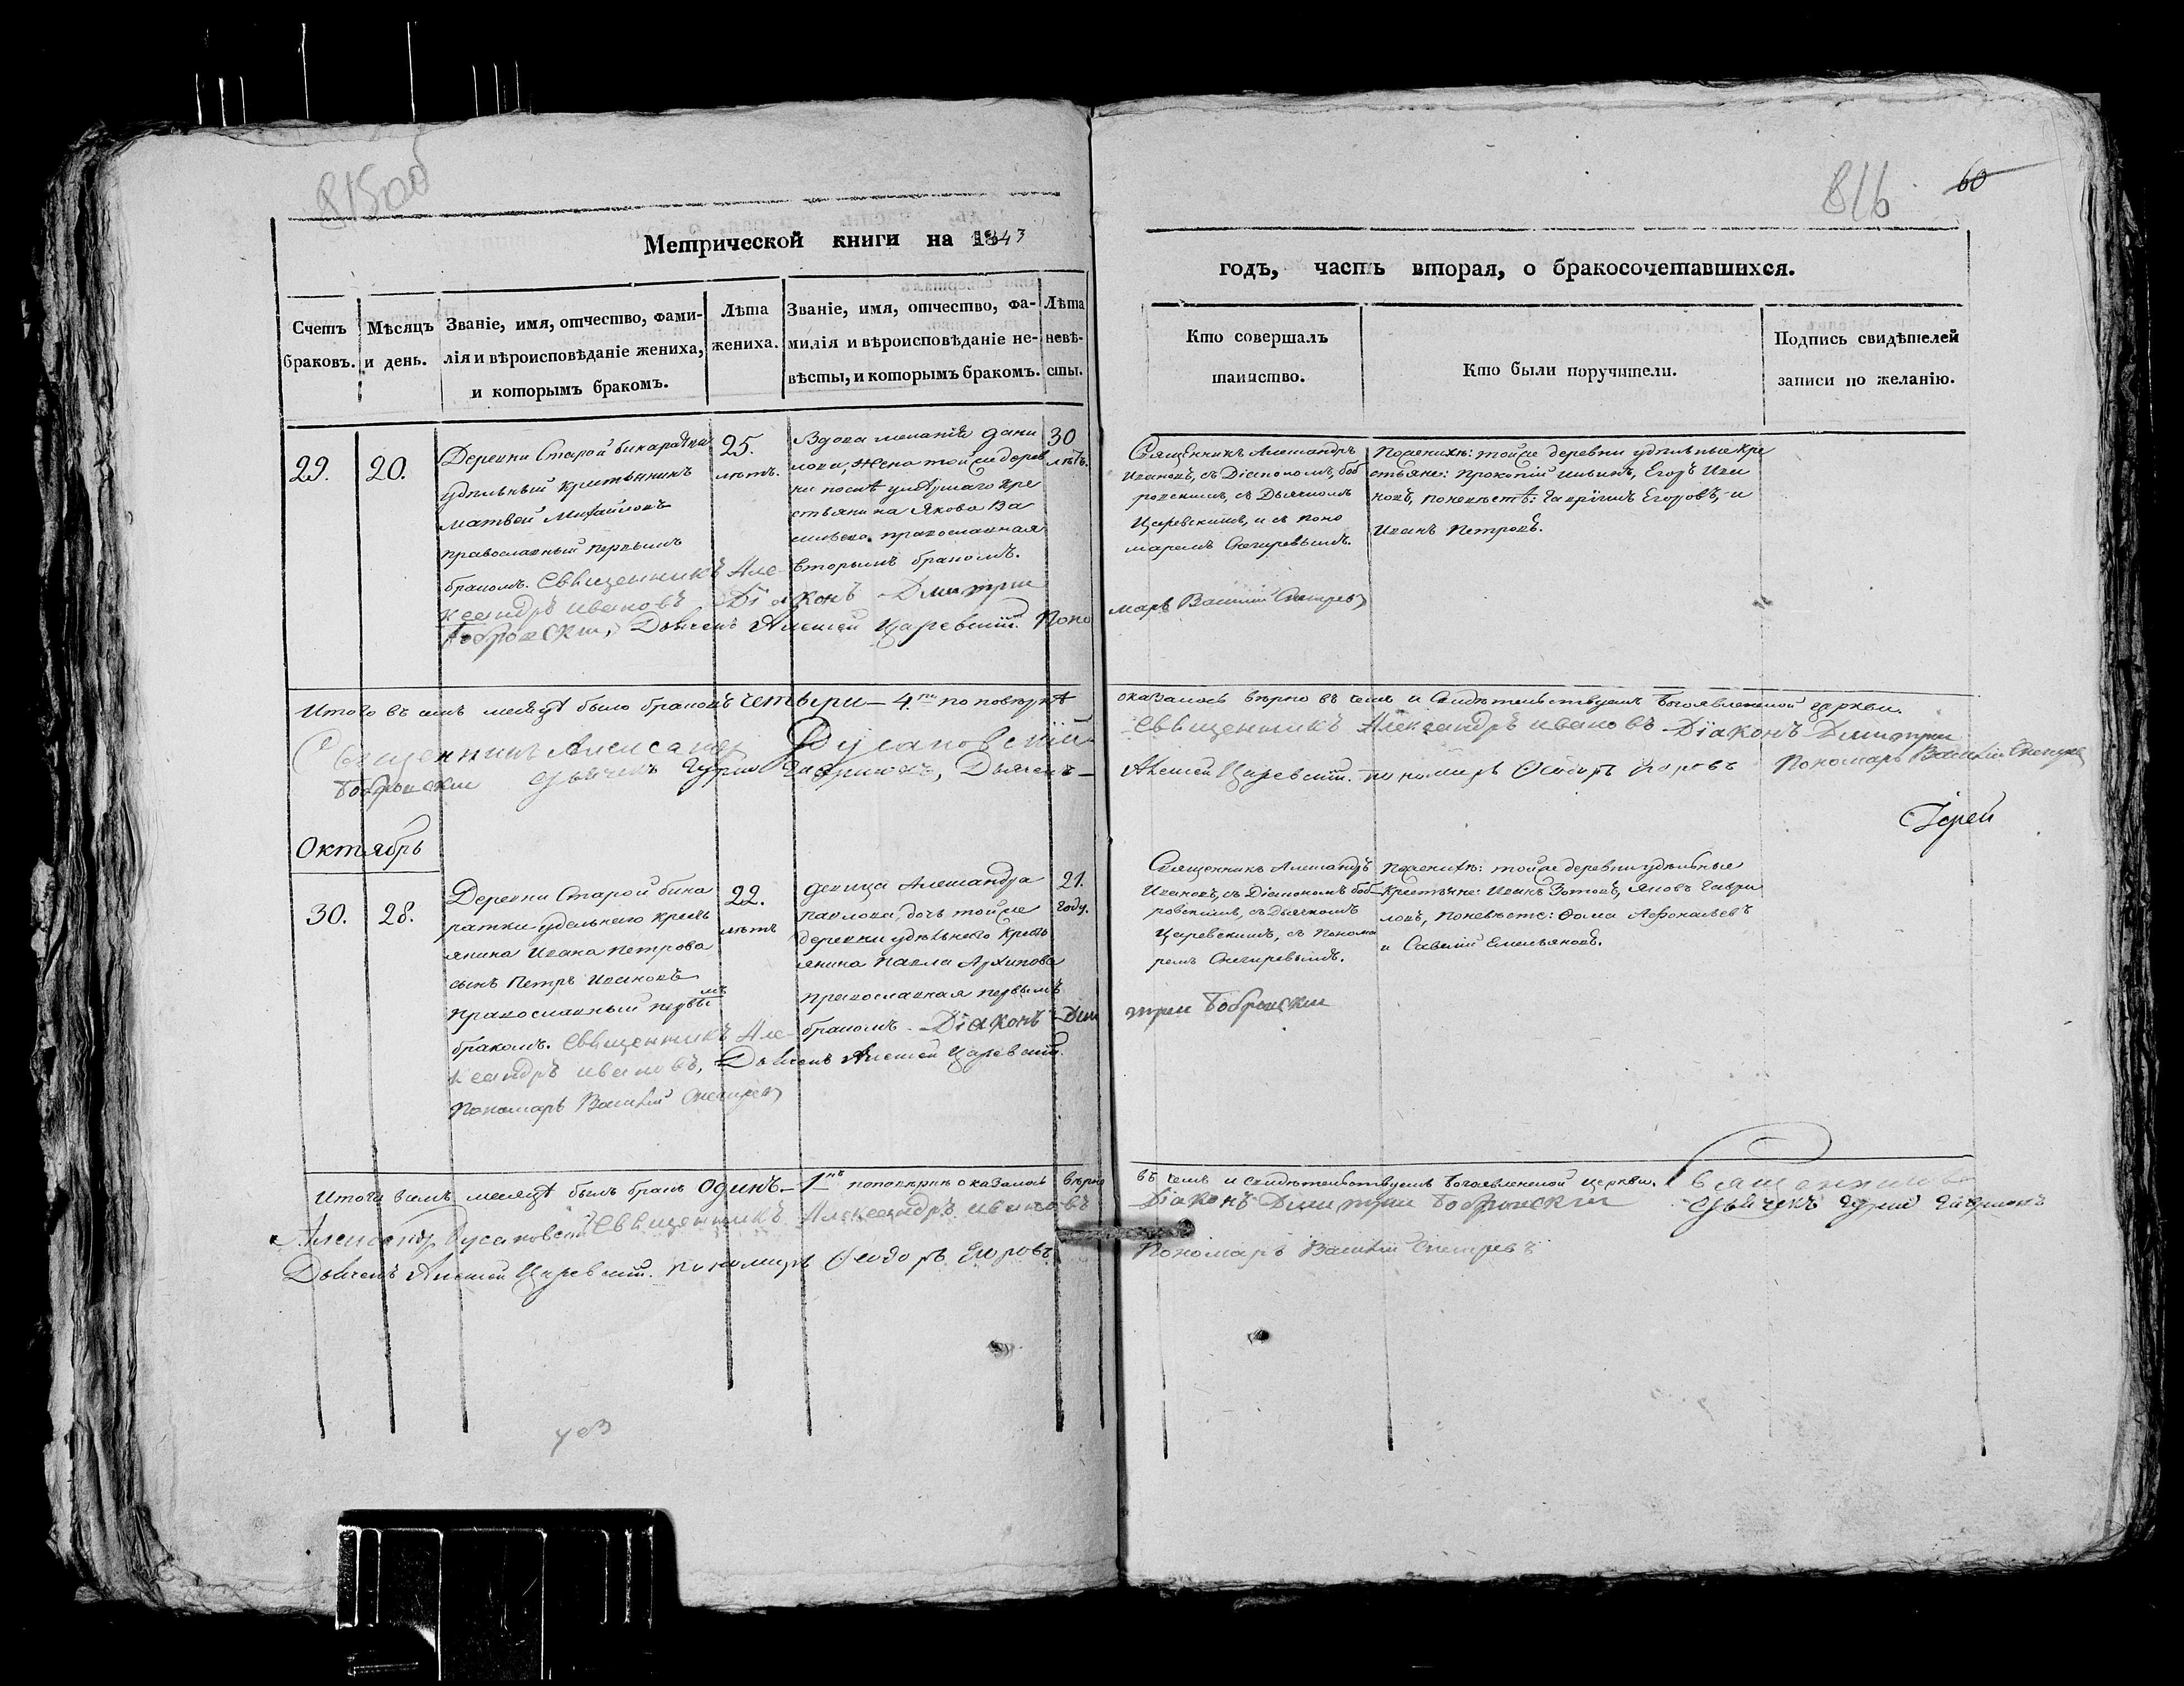 816
60
Метрической книги на 1843
годъ, часть вторая, о бракосочетавшихся.
Счетъ браковъ.
Мѣсяцъ и день.
Званіе, имя, отчество, фами-
лія и вѣроисповѣданіе жениха,
и которымъ бракомъ.
Лѣта
жениха.
Званіе, имя, отчество, фа-
милія и вѣроисповѣданіе не-
вѣсты, и которымъ бракомъ.
Лѣта
невѣ-
сты.
Кто совершалъ
таинство.
Кто были поручители.
Подпись свидѣтелей
записи по желанію.
29.
20.
Деревни Старой бинаратки
удѣльный крестьянинъ
Матвей Михайловъ
православный первымъ
бракомъ. Священникъ Але-
ксандръ Ивановъ Діаконъ Дмитри
Бобровски, Дьячекъ Алексей Царевскій. Поно
25.
лѣтъ.
Вдова Дани
лова, жена той же дерев
ни послѣ умершаго кре
стьянина Якова Ва
сильева. православная
вторымъ бракомъ.
30
лѣтъ.
Священникъ Александръ
Ивановъ, съ Діакономъ Боб
ровскимъ, съ Дьячкомъ
Царевскимъ, и съ поно
маремъ Снегиревымъ.
марь Василій Снегирев
По женихѣ: той же деревни удѣльные кре
стьяне: Прокопій Ильинъ, Егоръ Ива
новъ, по невѣстѣ: Гаврiилъ Егоровъ, и
Иванъ Петровъ.
Итого въ семъ месяцѣ было браковъ четыри — 4. по повѣркѣ
оказалось вѣрно въ чемъ и Свидѣтельствуемъ Богоявленской церкви.
Священникъ Александр Русановскій
Священникъ Александръ Ивановъ Діаконъ Димитри
Бобровски Дьячекъ Гурий Гавриловъ, Дьячекъ
Алексей Царевскій. пономарь Феодоръ Егоровъ Пономарь Василій Снегирев
Іерей
Октябрь
30.
28.
Деревни Старой бина
ратки удельнаго кресть
янина Ивана Петрова
сынъ Петръ Ивановъ
православный первымъ
бракомъ. Священникъ Але-
ксандръ Ивановъ, Дьячекъ Алексей Царевскій.
Пономарь Василій Снегирев
22.
лѣтъ
девица Александра
Павлова, дочь той же
деревни удѣльнаго кресть
янина Павла Архипова
православная первымъ
бракомъ. Діаконъ Дми
21.
году.
Священникъ Александръ
Ивановъ, съ Діакономъ Боб-
ровскимъ, съ Дьячкомъ
Царевскимъ, съ Понома
ремъ Снегиревымъ.
трии Бобровски
По женихѣ: той же деревни удѣльные
Крестьяне: Иванъ Зотовъ, Яковъ Гаври
ловъ, по невѣсте: Фома Афонасьевъ
и Савелій Емельяновъ.
Итого въ семъ месяцѣ былъ бракъ Одинъ. — 1нъ по повѣрке оказалось вѣрно
въ чемъ и Свидѣтельствуемъ Богоявленской церкви. Священникъ
Александр Русановскій Священникъ Александръ Ивановъ
Діаконъ Димитри Бобровски Дьячекъ Гурий Гавриловъ
Дьячекъ Алексей Царевскій. пономарь Феодоръ Егоровъ
Пономарь Василій Снегиревъ